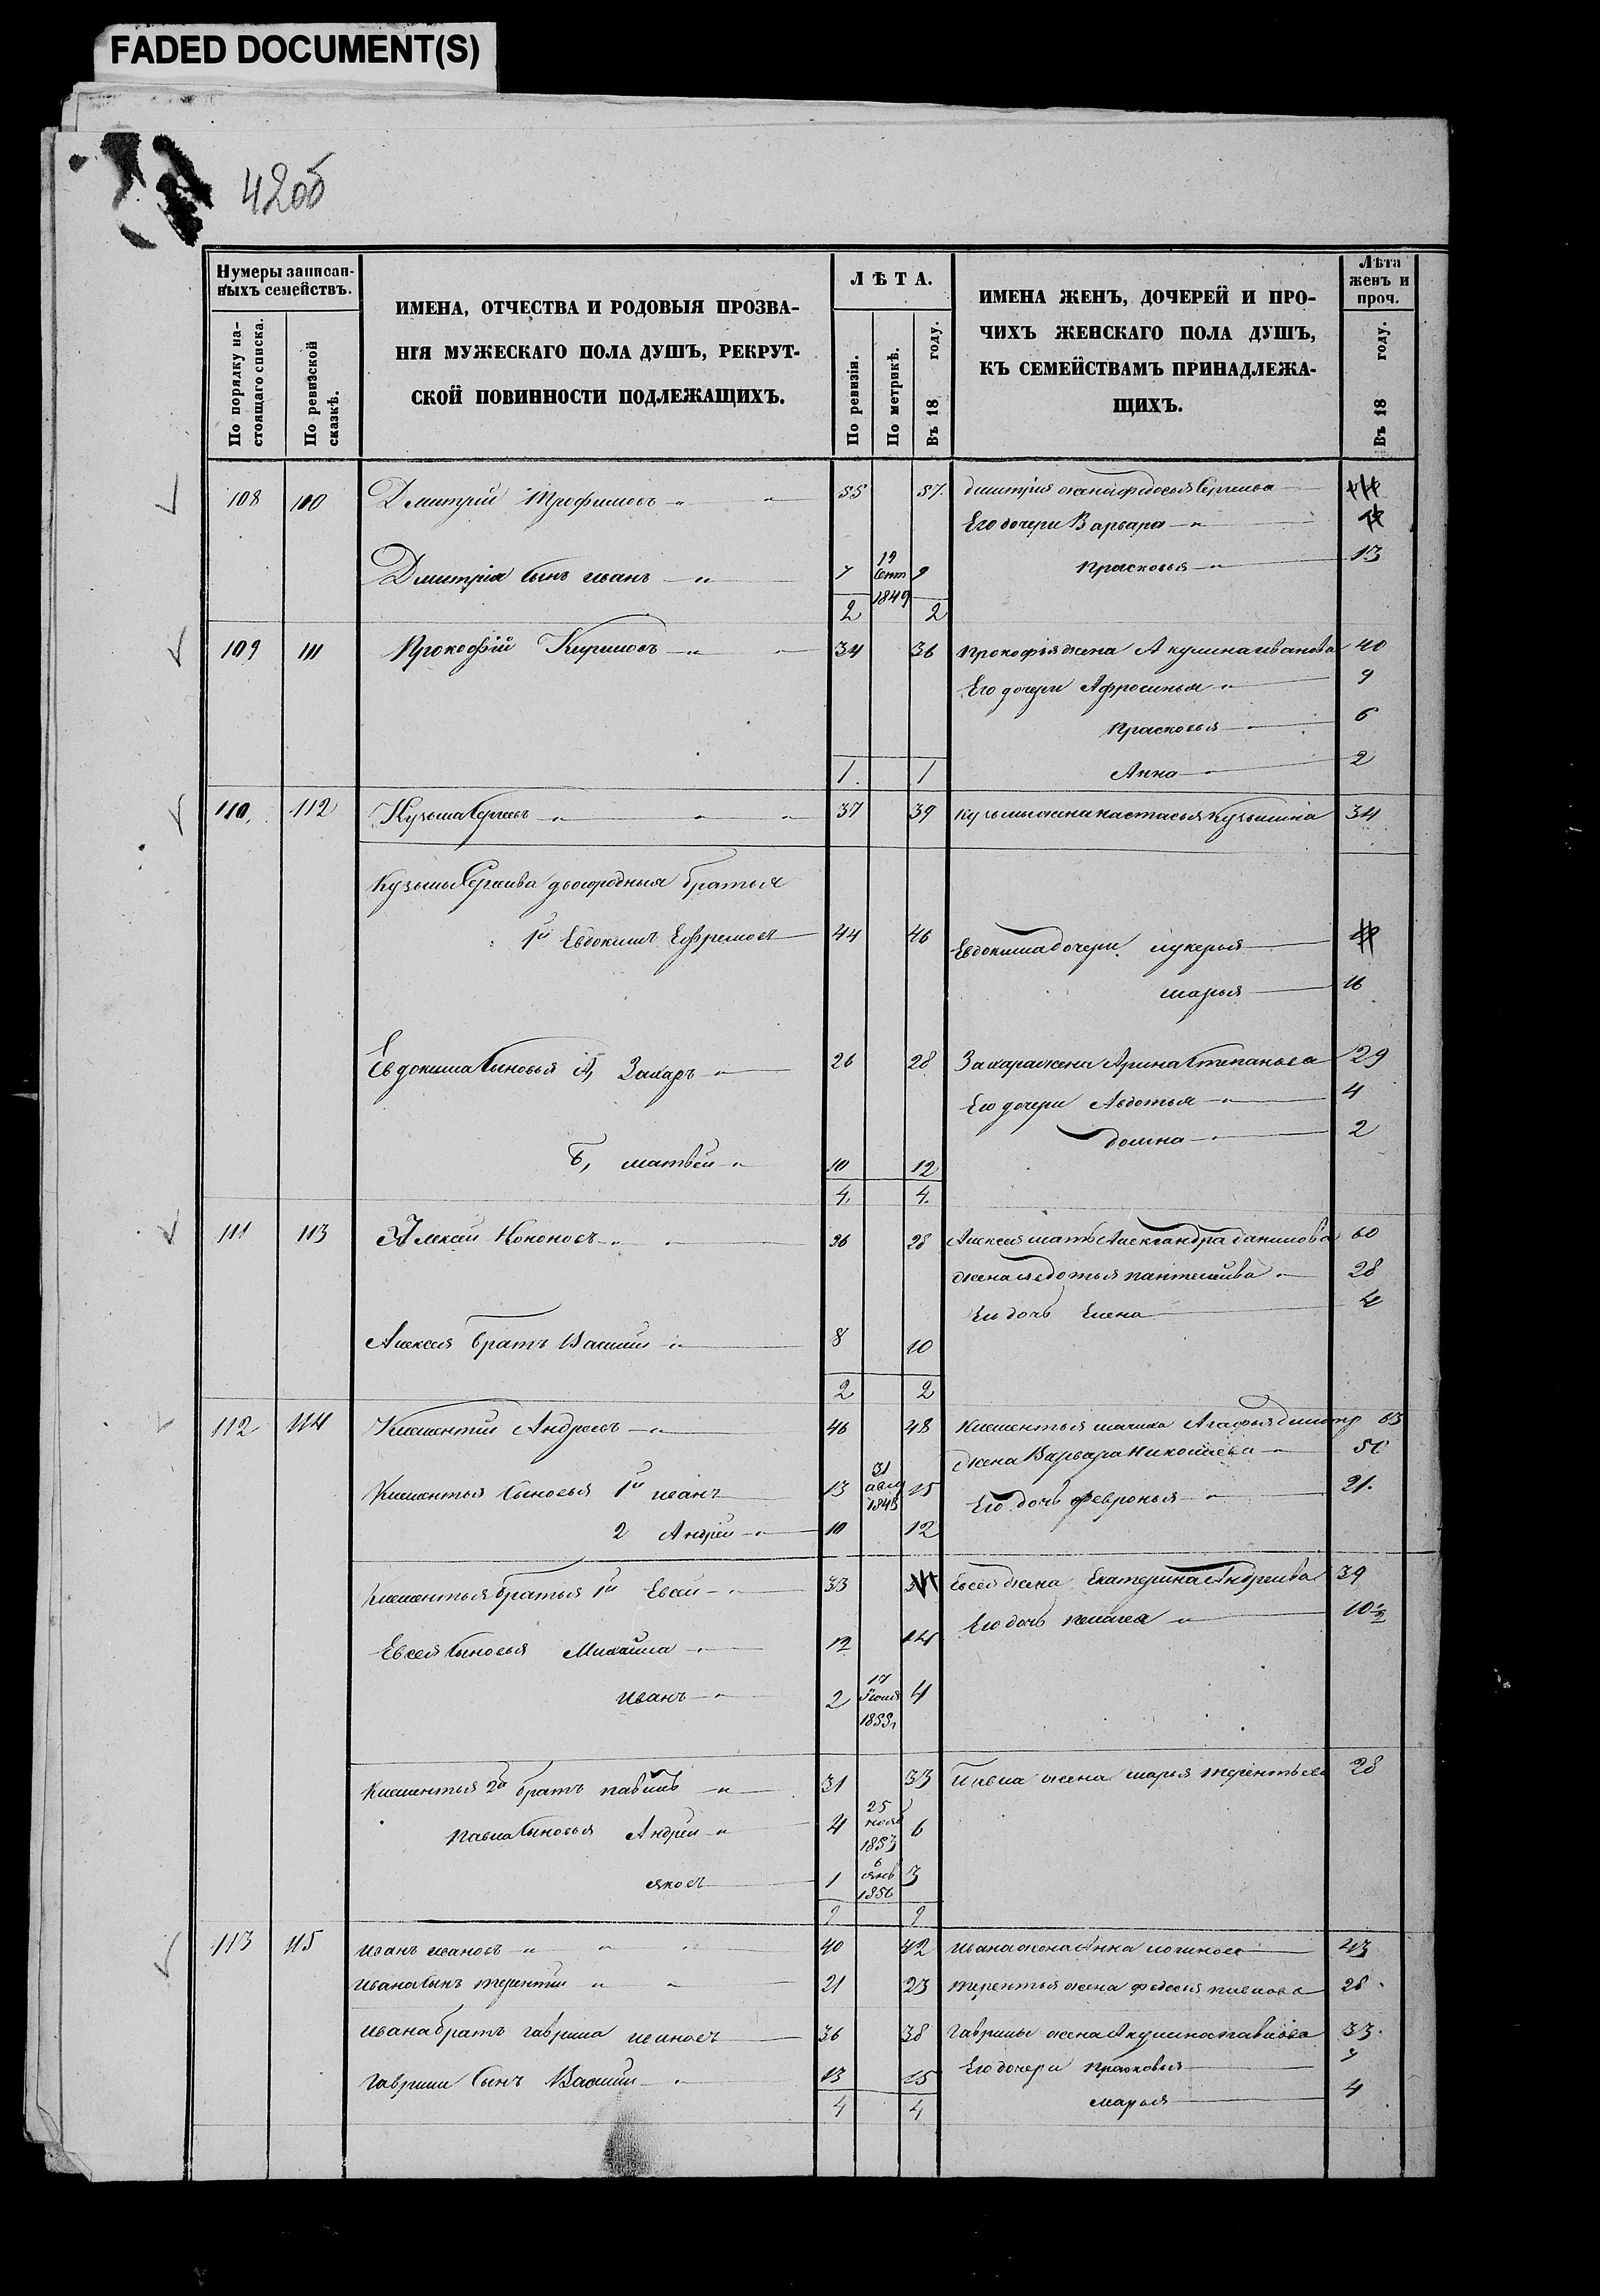 FADED DOCUMENT(S)
42об
Нумеры записан-
ныхъ семействъ.
По порядку на-
стоящаго списка.
По ревизской
сказкѣ.
ИМЕНА, ОТЧЕСТВА И РОДОВЫЯ ПРОЗВА-
НІЯ МУЖЕСКАГО ПОЛА ДУШЪ, РЕКРУТ-
СКОЙ ПОВИННОСТИ ПОДЛЕЖАЩИХЪ.
ЛѢТА.
По ревизіи.
По метрикѣ.
Въ 18 году.
ИМЕНА ЖЕНЪ, ДОЧЕРЕЙ И ПРО-
ЧИХЪ ЖЕНСКАГО ПОЛА ДУШЪ,
КЪ СЕМЕЙСТВАМЪ ПРИНАДЛЕЖА-
ЩИХЪ.
Лѣта
женъ и
проч.
Въ 18 году.
108 110 Дмитрій Трофимовъ 55 57 Дмитрія жена федосья Сергеева
Его дочери Варвара
Прасковья 13
Дмитрія сынъ иванъ 7 19 Сент 1849 9
2 2
109 111 Прокофій Киримовъ 34 36 Прокофья жена Акулина иванова 40
Его дочери Афросинья 9
Прасковья 6
Анна 2
1 1
110 112 Кузьма Сергеевъ 37 39 Кузьмы жена настасья Кузьмина 34
Кузьмы Сергеева двоюродныя братья
1й Евдокимъ Ефремовъ 44 46 Евдокима дочери лукерья
марья 16
Евдокима сыновья А, Захаръ 26 28 Захара жена Арина Степанова 29
Его дочери Авдотья 4
домна 2
Б, матвей 10 12
4 4
111 113 Алексей Кононовъ 26 28 Алексея мать Александра данилова 60
жена федотья пантелеева 28
Ея дочь Елена
Алексея братъ Василій 8 10
2 2
112 114 Клементій Андреевъ 46 48 Клементья мачиха Агафья дмитр 63
жена Варвара Николаева
Клементья сыновья 1й иванъ 13 31 авгу 1843 15 Его дочь февронья 21
2 Андрей 10 12
Клементья братья 1й Евсей 33 Евсея жена Екатерина Андреева 39
Его дочь пелагея
Евсея сыновья Михайла 12 14
иванъ 2 17 Июня 1855 4
Клементья 2й братъ павелъ 31 33 Павла жена марья терентьева 28
Павла сыновья Андрей 4 25 нояб 1853 6
яковъ 1 6 янв 1856 3
9 9
113 115 иванъ ивановъ 40 42 ивана жена Анна логинова 43
ивана сынъ терентій 21 23 терентья жена федосья павлова 28
ивана братъ гаврила ивановъ 36 38 гаврилы жена Акулина павлова 33
Его дочери прасковья 7
гаврилы сынъ Василій 13 15
марья 4
4 4